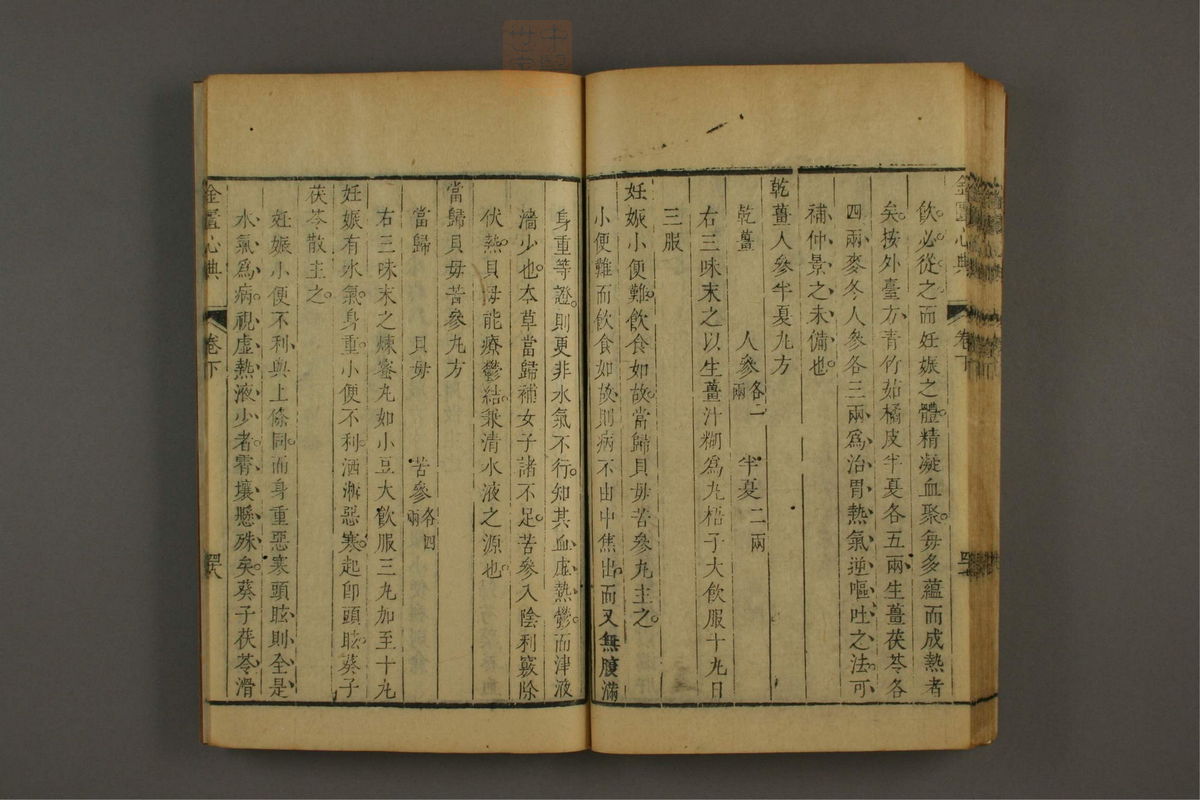 金匱心典 卷下
飲必從之而妊娠之體精凝血聚每多蘊而成熱者
矣按外臺方青竹茹橘皮半夏各五兩生薑茯苓各
四兩麥冬人參各三兩為治胃熱氣逆嘔吐之法可
補仲景之未備也
乾薑人參半夏丸方
乾薑 人參各一兩 半夏二兩
右三味末之以生薑汁糊為丸梧子大飲服十丸日
三服
妊娠小便難飲食如故當歸貝母苦參丸主之
小便難而飲食如故則病不由中焦出而又無腹滿
身重等證則更非水氣不行知其血虛熱鬱而津液
濇少也本草當歸補女子諸不足苦參入陰利竅除
伏熱貝母能療鬱結兼清水液之源也
當歸貝母苦參丸方
當歸 貝母 苦參各四兩
右三味末之煉蜜丸如小豆大飲服三丸加至十丸
妊娠有水氣身重小便不利洒淅惡寒起卽頭眩葵子
茯苓散主之
妊娠小便不利與上條同而身重惡寒頭眩則全是
水氣為病視虛熱液少者霄壤懸殊矣葵子茯苓滑
金匱心典 卷下